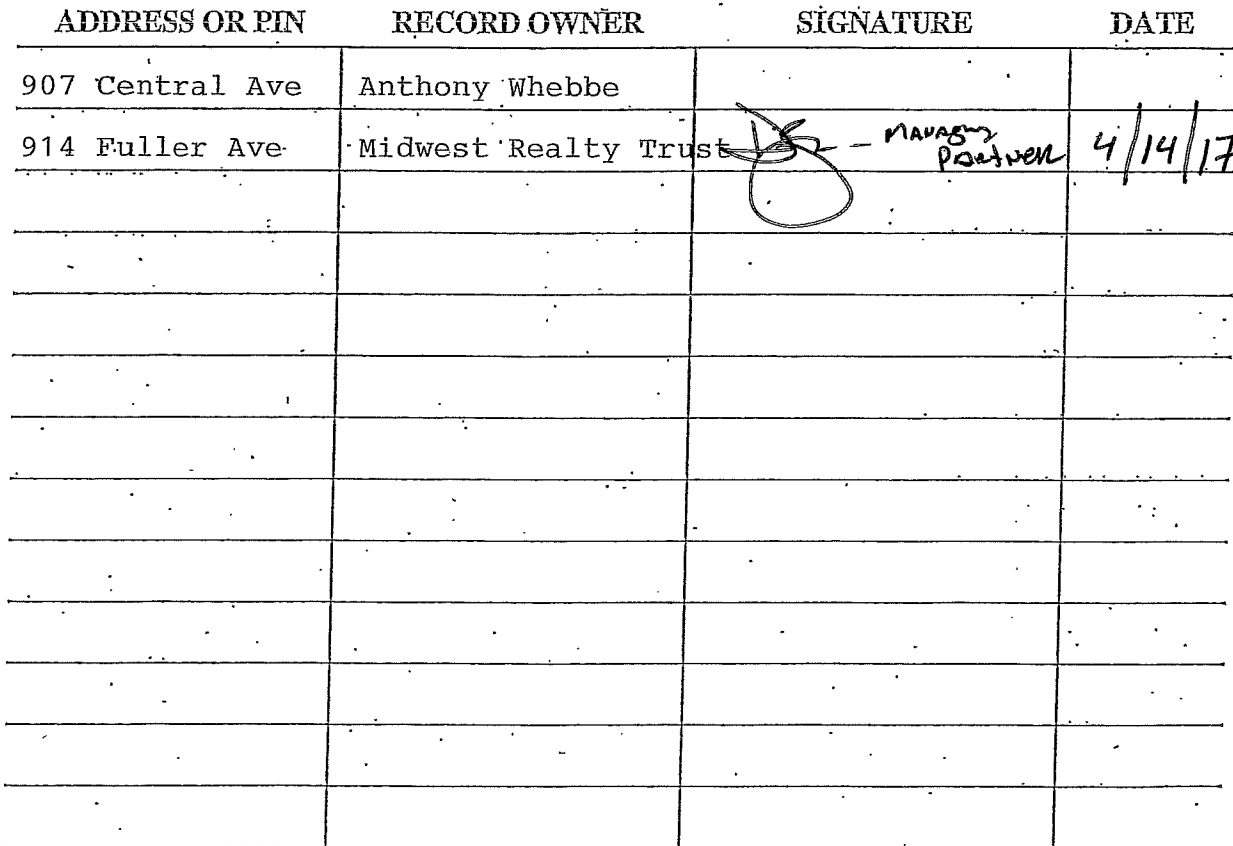 ADDRESS OR PIN RECORD OWNER SIGNATURE DATE
907 Central Ave Anthony Whebbe
914 Fuller Ave Midwest Realty Trust - Managing 4/14/17
Partner